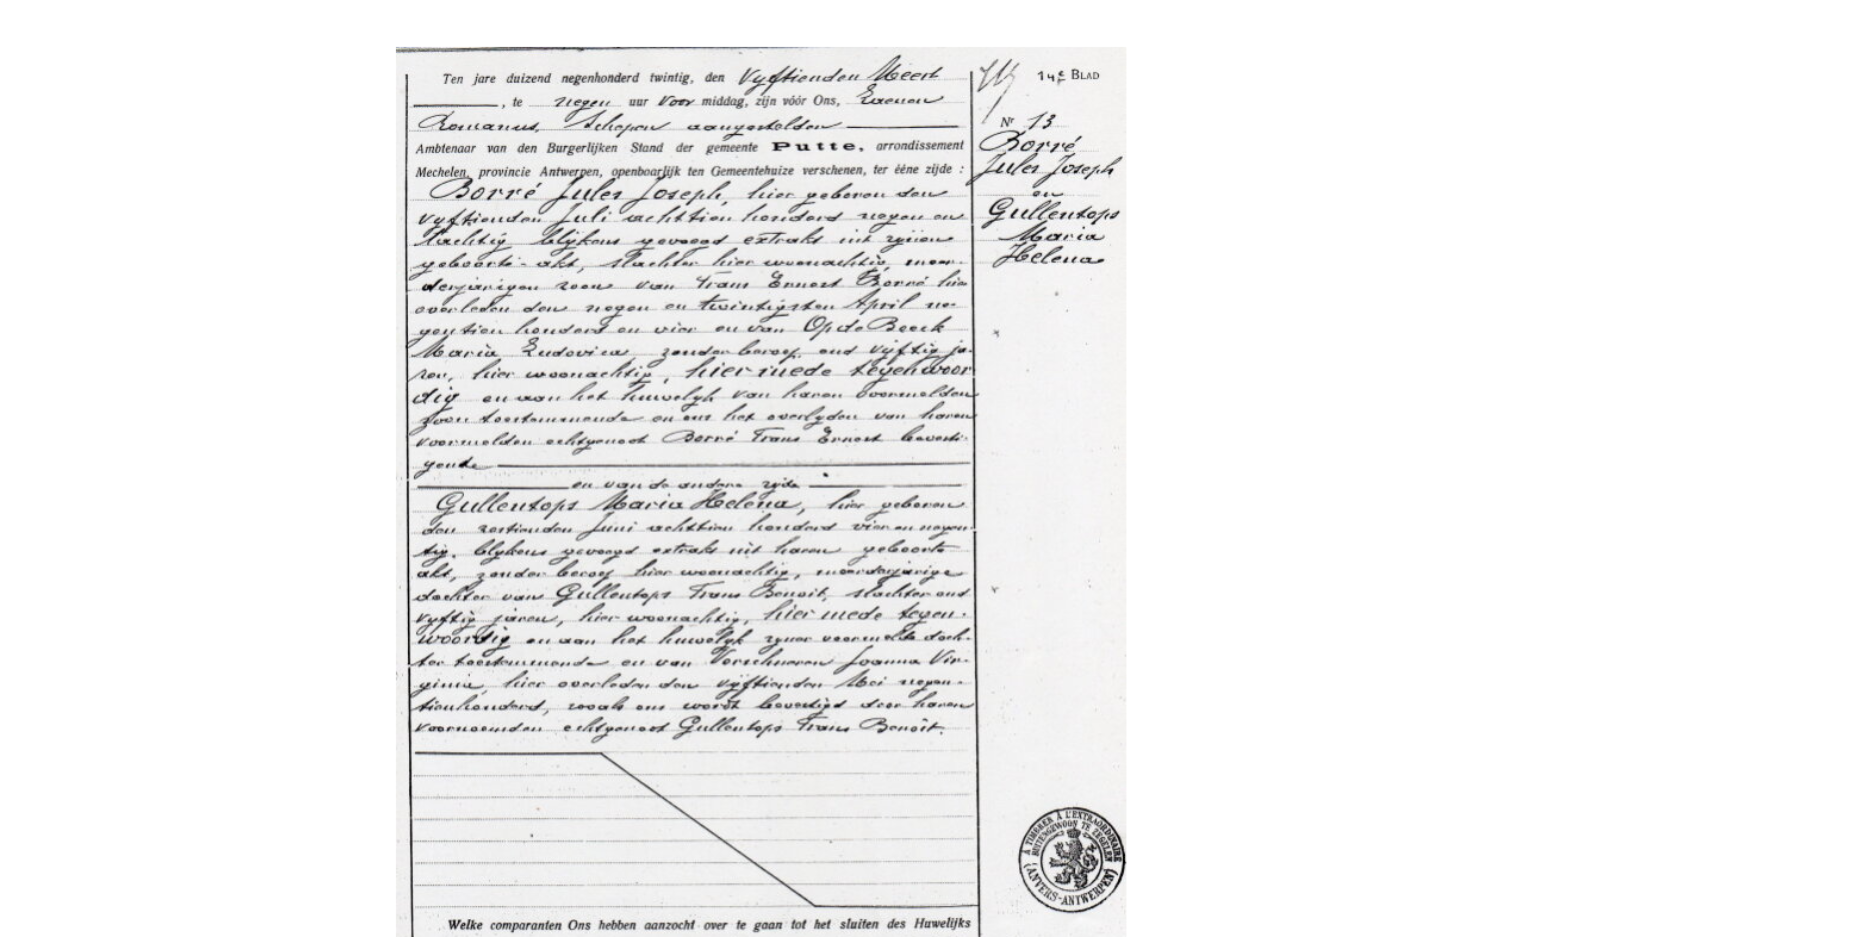 Ten jare duizend negenhonderd twintig, den vyftienden Meert
, te negen uur voor middag, zijn vóór Ons,
Romanus, Schepen aangestelden
Ambtenaar van den Burgerlijken Stand der gemeente Putte, arrondissement
Mechelen, provincie Antwerpen, openbaarlijk ten Gemeentehuize verschenen, ter ééne zijde :
Borré Jules Joseph, hier geboren den
vyftienden Juli achttien honderd negen en
tachtig blijkens gevoegd extrakt uit zijnen
geboorte-akt, slachter hier woonachtig, meer-
derjarigen zoon van Frans Ernest Borré hier
overleden den negen en twintigsten April ne-
gentien honderd en vier en van Op de Beeck
Maria Ludovica, zonder beroep, oud vijftig ja-
ren, hier woonachtig, hier mede tegenwoor
dig en aan het huwelyk van haren voormelden
zoon toestemmende en ons het overlyden van haren
voormelden echtgenoot Borré Frans Ernest bevesti-
gende
en van de andere zyde
Gullentops Maria Helena, hier geboren
den zestienden Juni achttien honderd vier en negen-
tig, blykens gevoegd extrakt uit haren geboorte
akt, zonder beroep hier woonachtig, meerderjarige
dochter van Gullentops Frans Benoit, slachter oud
vyftig jaren, hier woonachtig, hier mede tegen-
woordig en aan het huwelyk zyner voormelde doch-
ter toestemmende en van Verschueren Joanna Vir-
ginia, hier overleden den vyftienden Mei negen-
tienhonderd, zooals ons wordt bevestigd door haren
voornoemden echtgenoot Gullentops Frans Benoit.
Welke comparanten Ons hebben aanzocht over te gaan tot het sluiten des Huwelijks
14e BLAD
Nr 13
Borré
Jules Joseph
en
Gullentops
Maria
Helena
A TIMBRER À L'EXTRAORDINAIRE
BUITENGEWOON TE ZEGELEN
(ANVERS-ANTWERPEN)